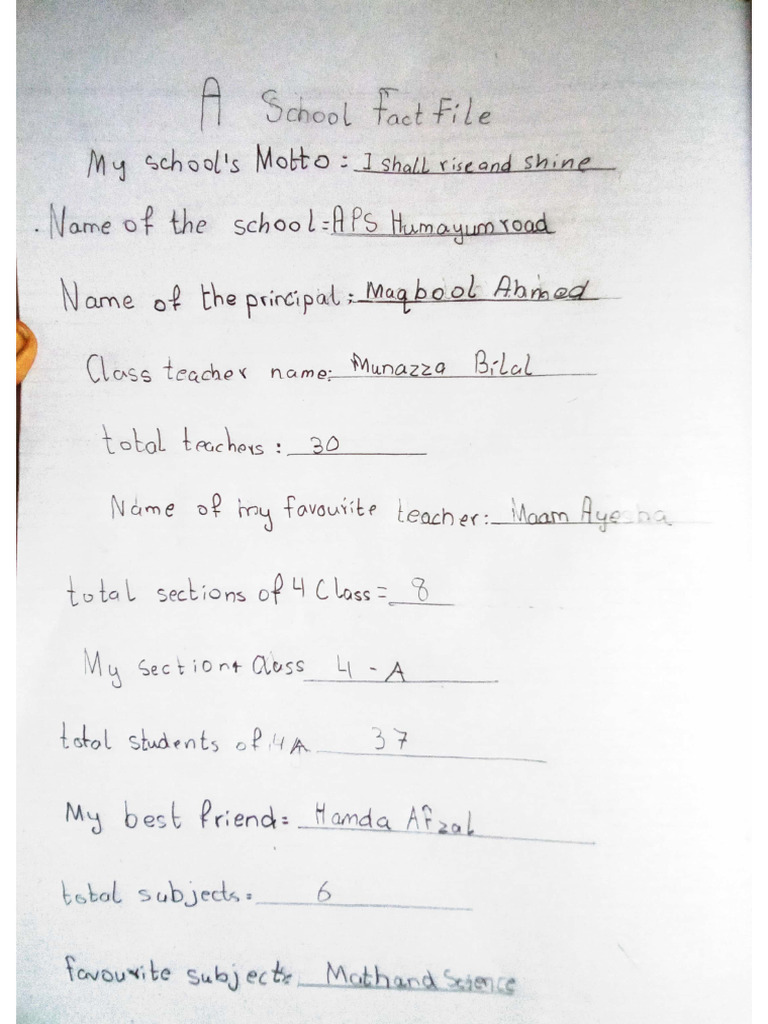 A School Fact File
My school's Motto : I shall rise and shine
. Name of the school = APS Humayum road
Name of the principal : Maqbool Ahmed
Class teacher name: Munazza Bilal
total teachers : 30
Name of my favourite teacher: Maam Ayesha
total sections of 4 Class = 8
My section + Class 4 - A
total students of 4A 37
My best friend = Hamda Afzal
total subjects = 6
favourite subject: Math and Science